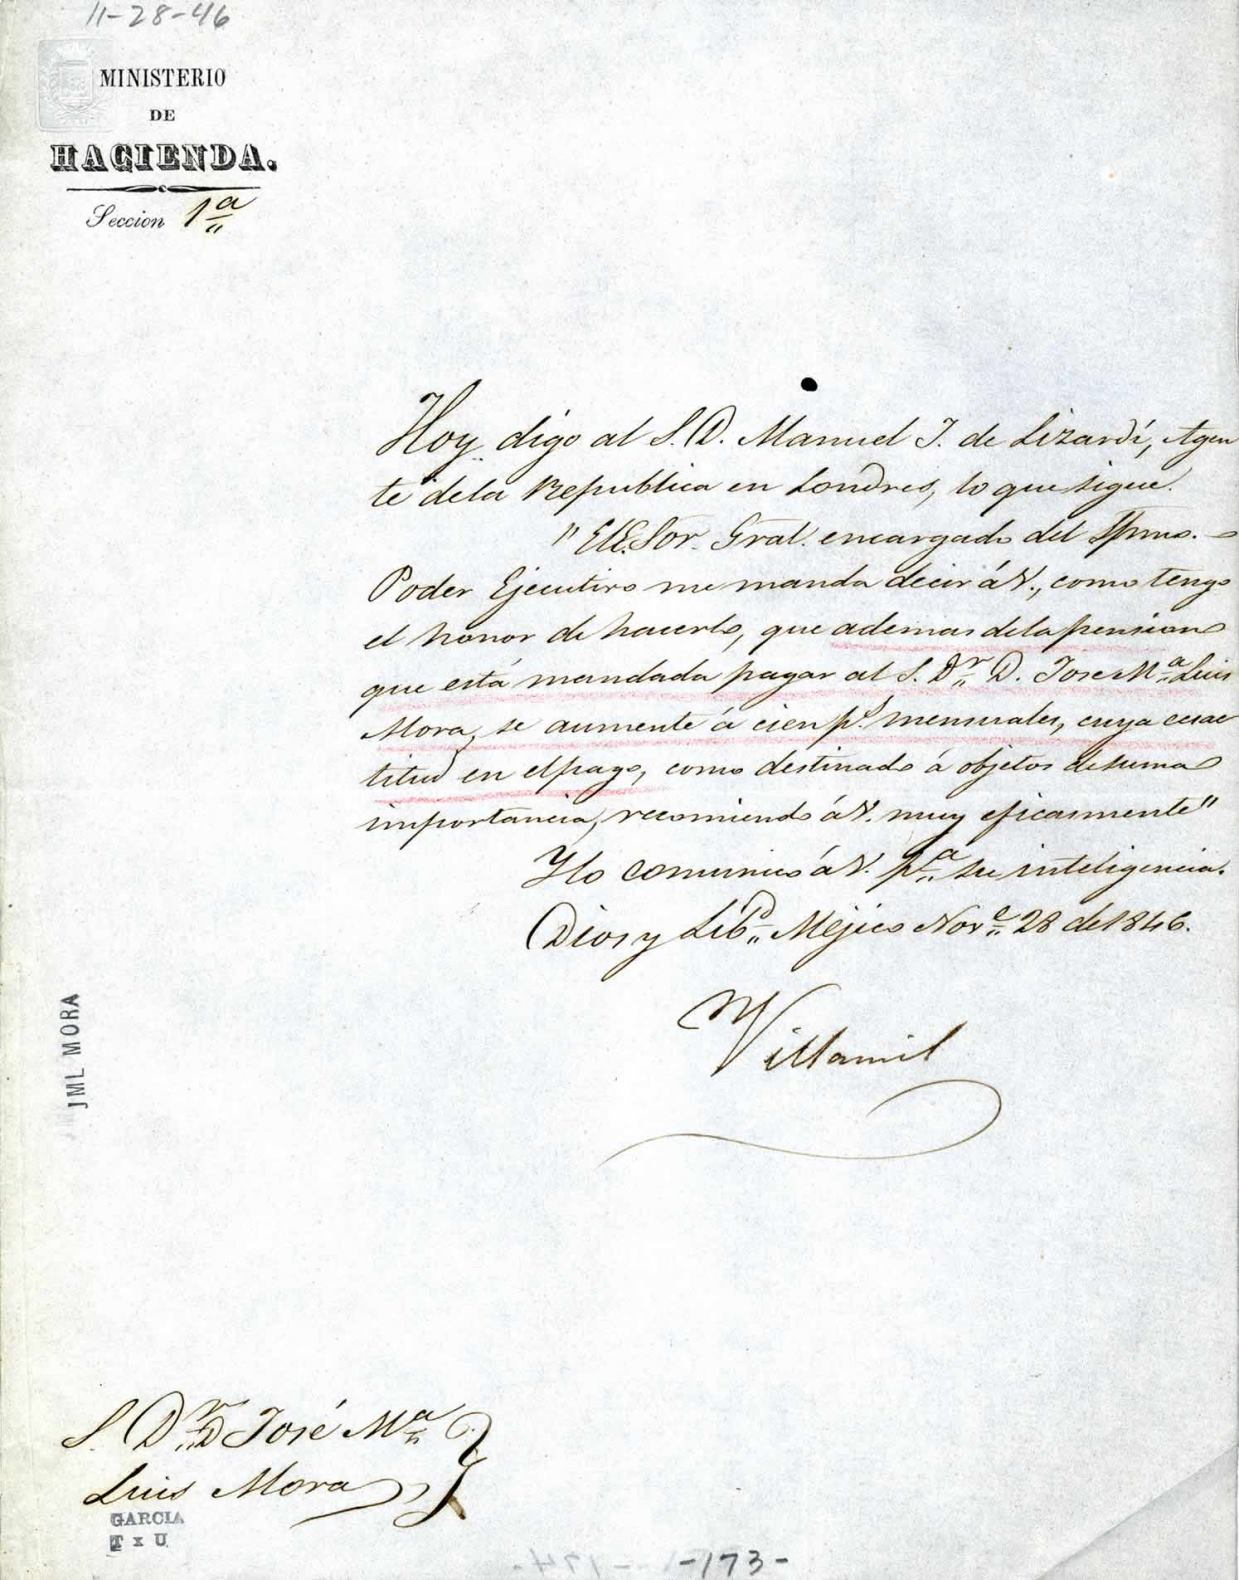 11-28-46
MINISTERIO
DE
HACIENDA.
Seccion 1ª
Hoy digo al S. D. Manuel J. de Lizardi, Agen
te de la Republica en Londres, lo que sigue.
"El E. Sor. Gral. encargado del Spmo.
Poder Ejecutivo me manda decir á V., como tengo
el honor de hacerlo, que ademas de la pension
que está mandada pagar al S. Dr. D. Jose Mª Luis
Mora, se aumente á cien ps. mensuales, cuya ecsac
titud en el pago, como destinado á objetos de suma
importancia, recomiendo á V. muy eficasmente"
Y lo comunico á V. pª su inteligencia.
Dios y Libd. Mejico Nove. 28 de 1846.
Villamil
JML MORA
S. Dr. D José Mª
Luis Mora
GARCIA
T x U
-173-